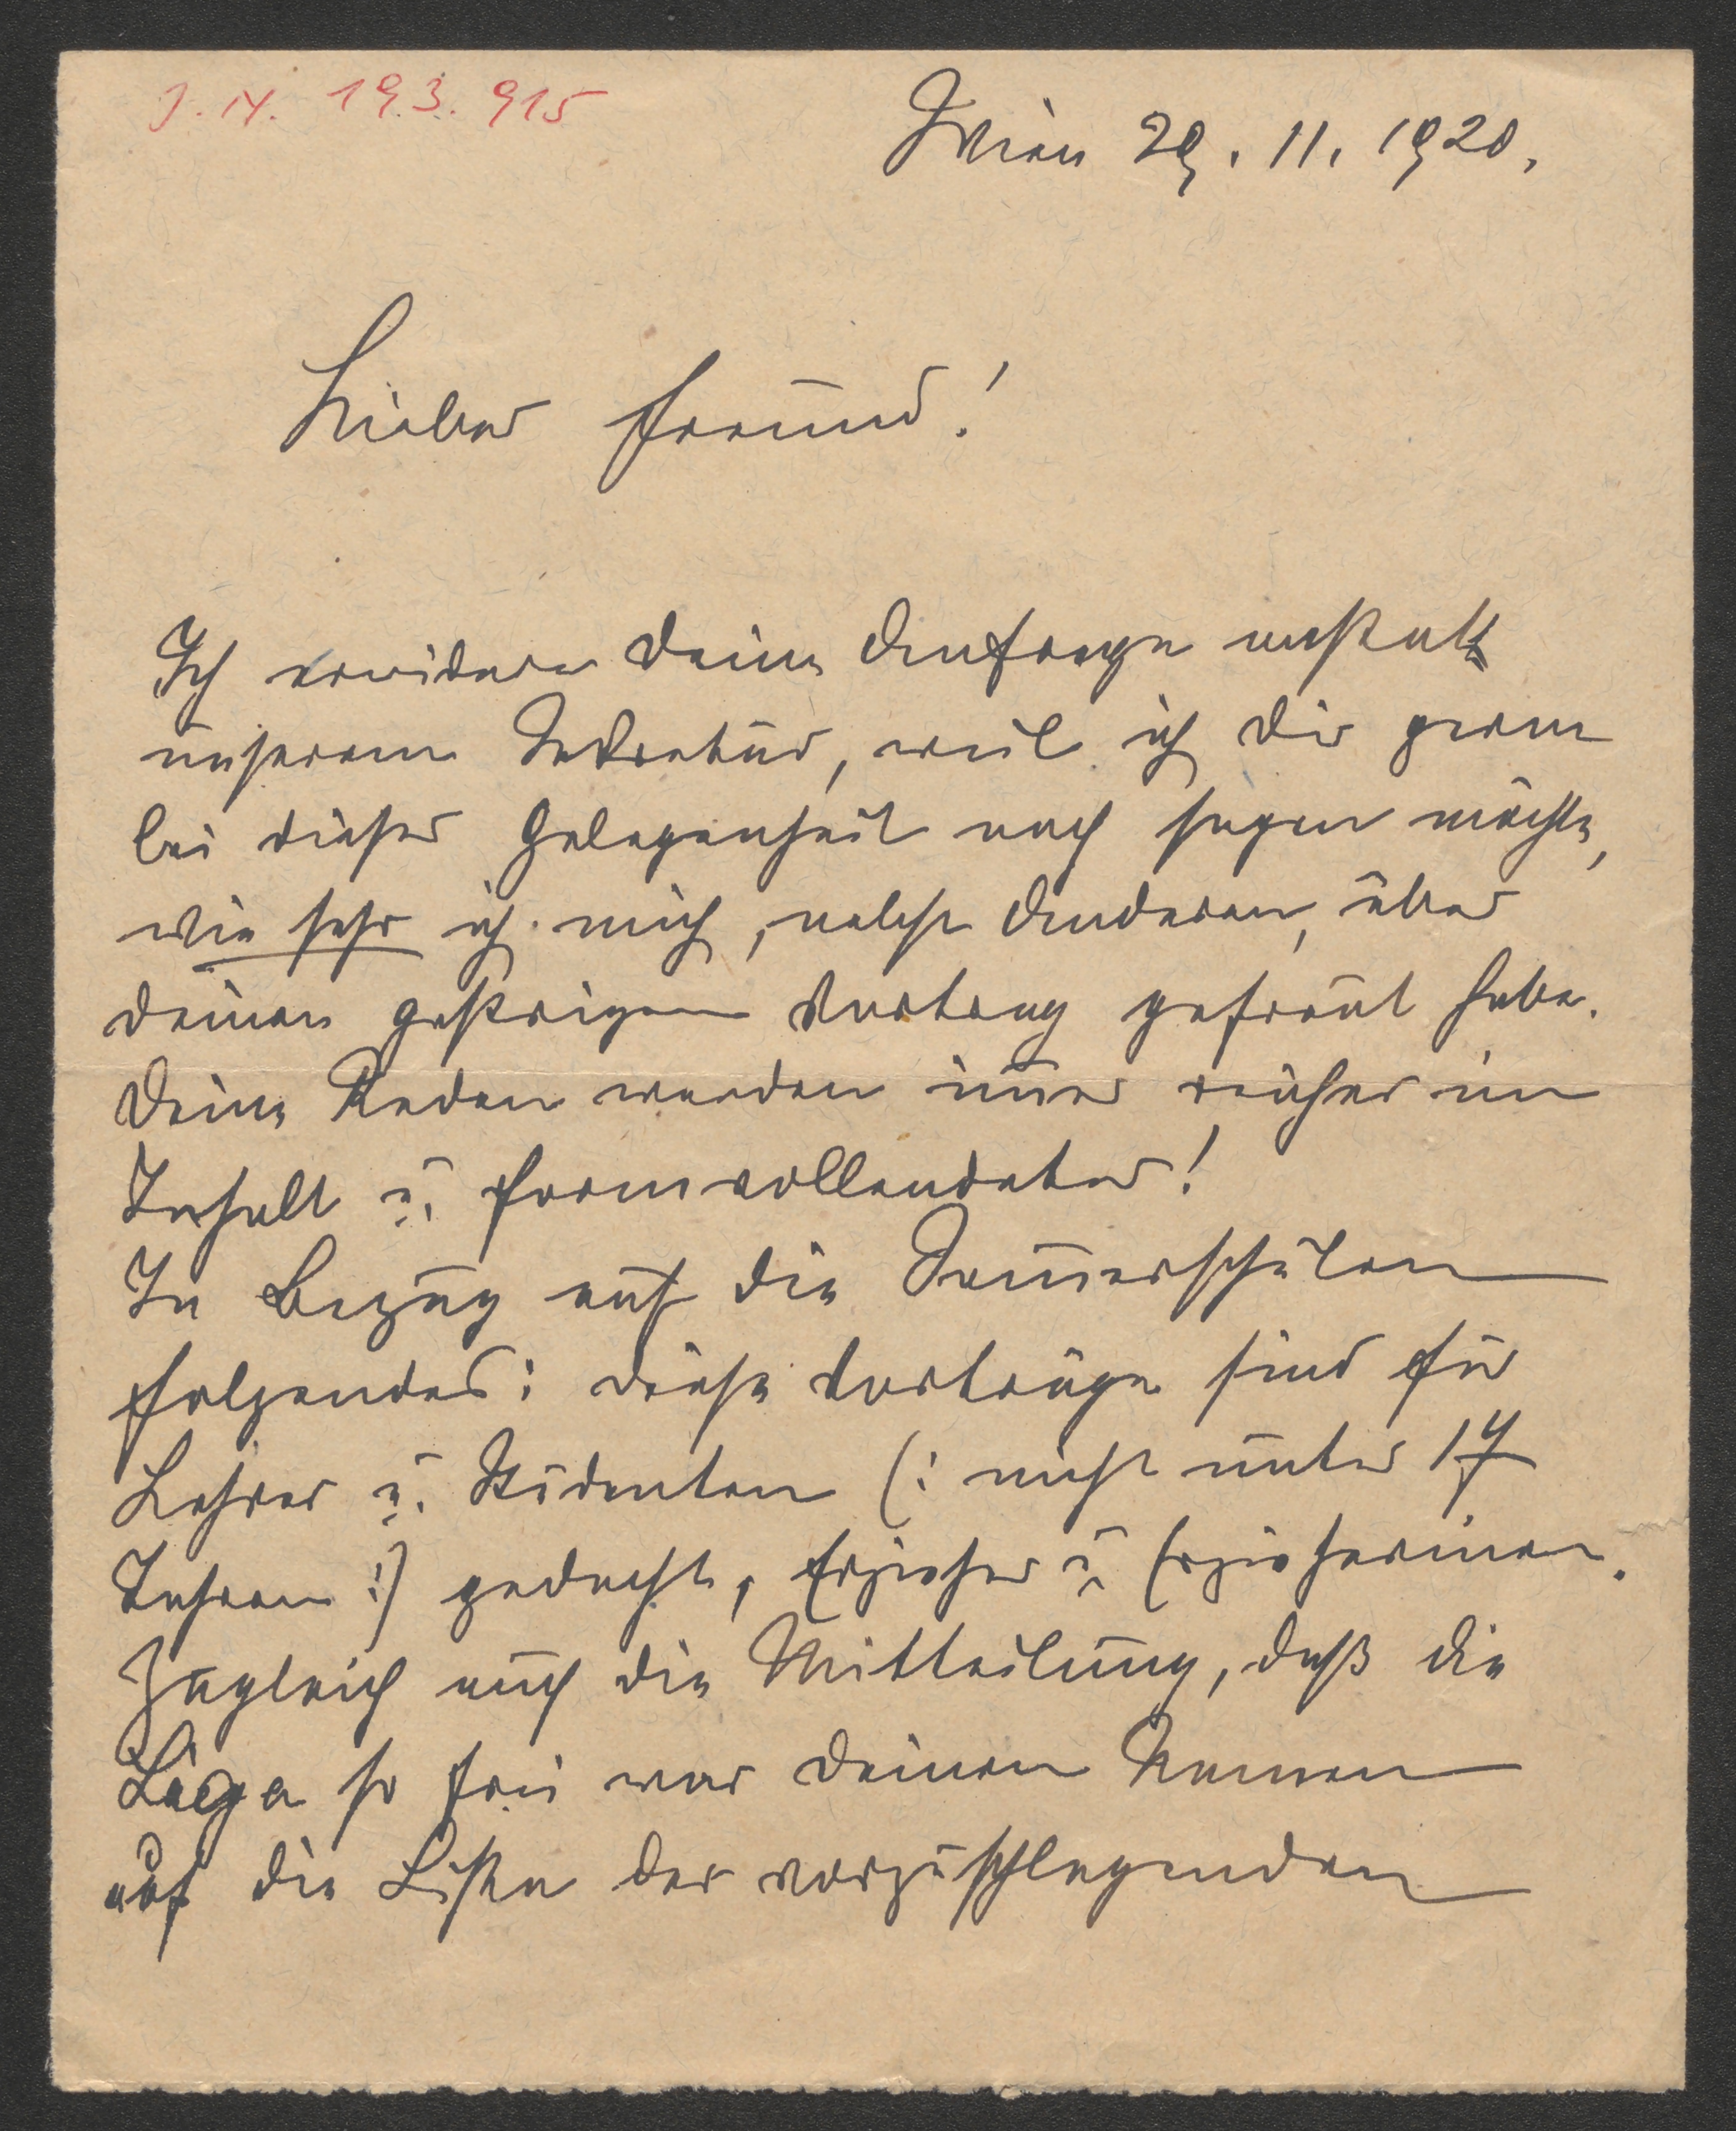 J.N. 193.915
Wien 29. 11. 1920.
Lieber Freund!
Ich erwidere Deine Anfrage anstatt
unserem Sekretär, weil ich Dir gerne
bei dieser Gelegenheit noch sagen möchte,
wie sehr ich mich, nebst Anderen, über
Deinen gestrigen Vortrag gefreut habe.
Deine Reden werden im̅er reicher im
Inhalt u. formvollendeter!
In Bezug auf die Som̅erschulen
folgendes: diese Vorträge sind für
Lehrer u. Studenten (: nicht unter 17
Jahren :) gedacht, Erzieher u Erzieherinen.
Zugleich auch die Mitteilung, daß die
Liga so frei war Deinen Namen
auf die Liste der vorzuschlagenden